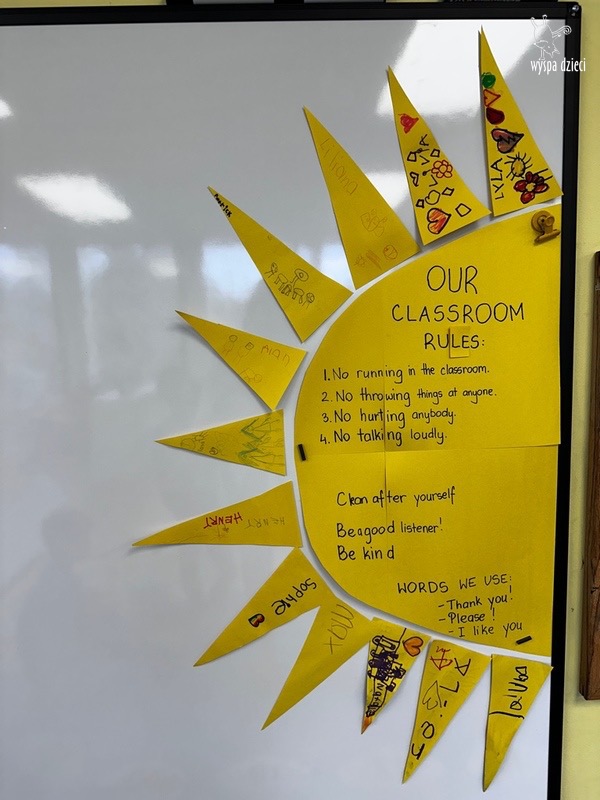 wyspa dzieci
LYLA
OUR
CLASSROOM
RULES:
1. No running in the classroom.
2. No throwing things at anyone.
3. No hurting anybody.
4. No talking loudly.
Clean after yourself
Be a good listener!
Be kind
WORDS WE USE:
- Thank you!
- Please!
- I like you
HENRY
HENRY
Sophie
MAX